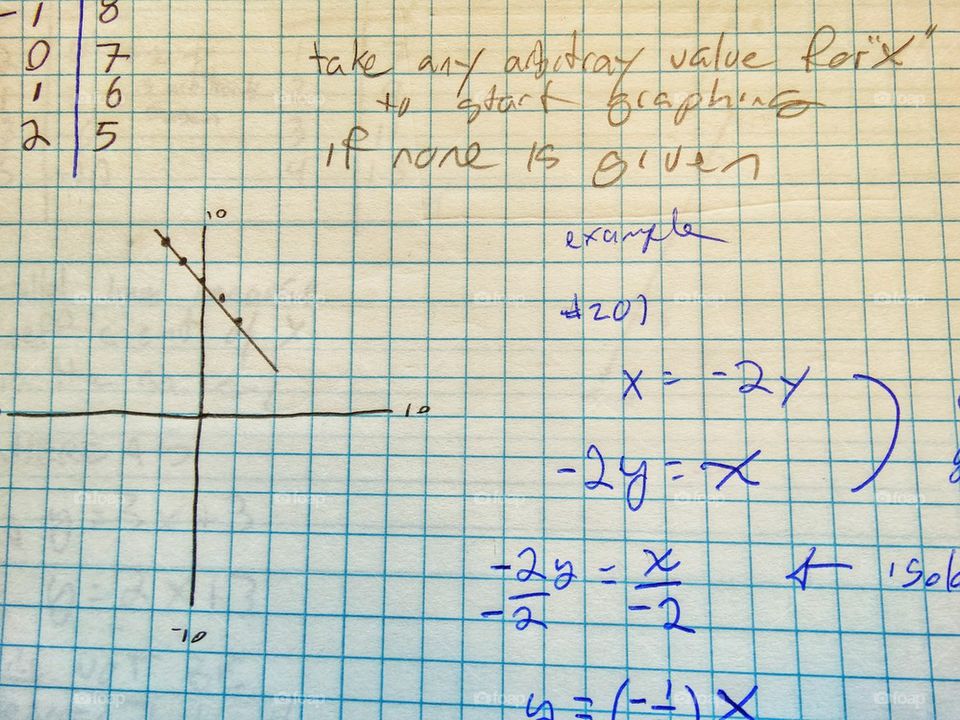 -1 8
0 7
1 6
2 5
take any arbitray value for "x"
to start graphing
if none is given
10
10
-10
example
#20)
x = -2y
-2y = x
-2y/-2 = x/-2
← isol
y = (-1/
) x